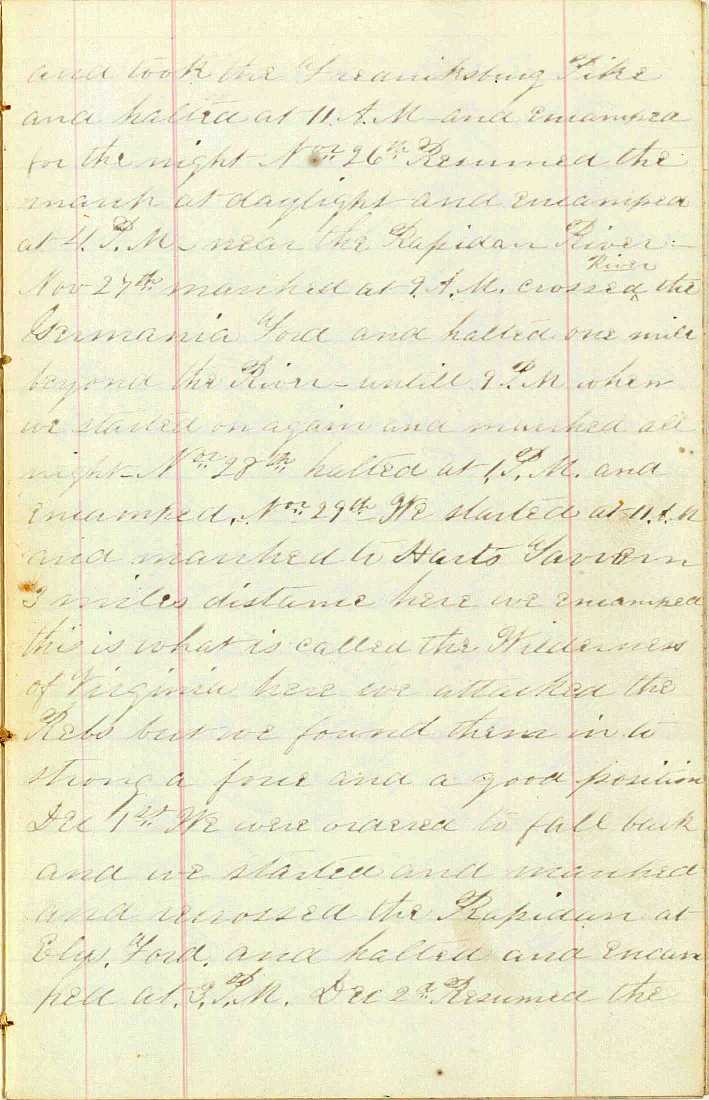 and took the Fredricksburg Pike
and halted at 11. A.M and encamped
for the night Nov. 26th Resumed the
march at daylight and encamped
at 4. P.M. near the Rapidan River
River
Nov 27th marched at 9. A.M. crossed the
Germania Ford and halted one mile
beyond the River untill 9 P.M when
we started on again and marched all
night Nov. 28th halted at 1, P.M. and
encamped. Nov. 29th We started at 11. A.M
and marched to Harts Tavern
3 miles distance here we encamped
this is what is called the Wilderness
of Virginia here we attacked the
Rebs but we found them in to
strong a force and a good position
Dec 1st We were ordered to fall back
and we started and marched
and recrossed the Rapidan at
Elys. Ford. and halted and encam
ped at. 3. P.M. Dec 2d Resumed the